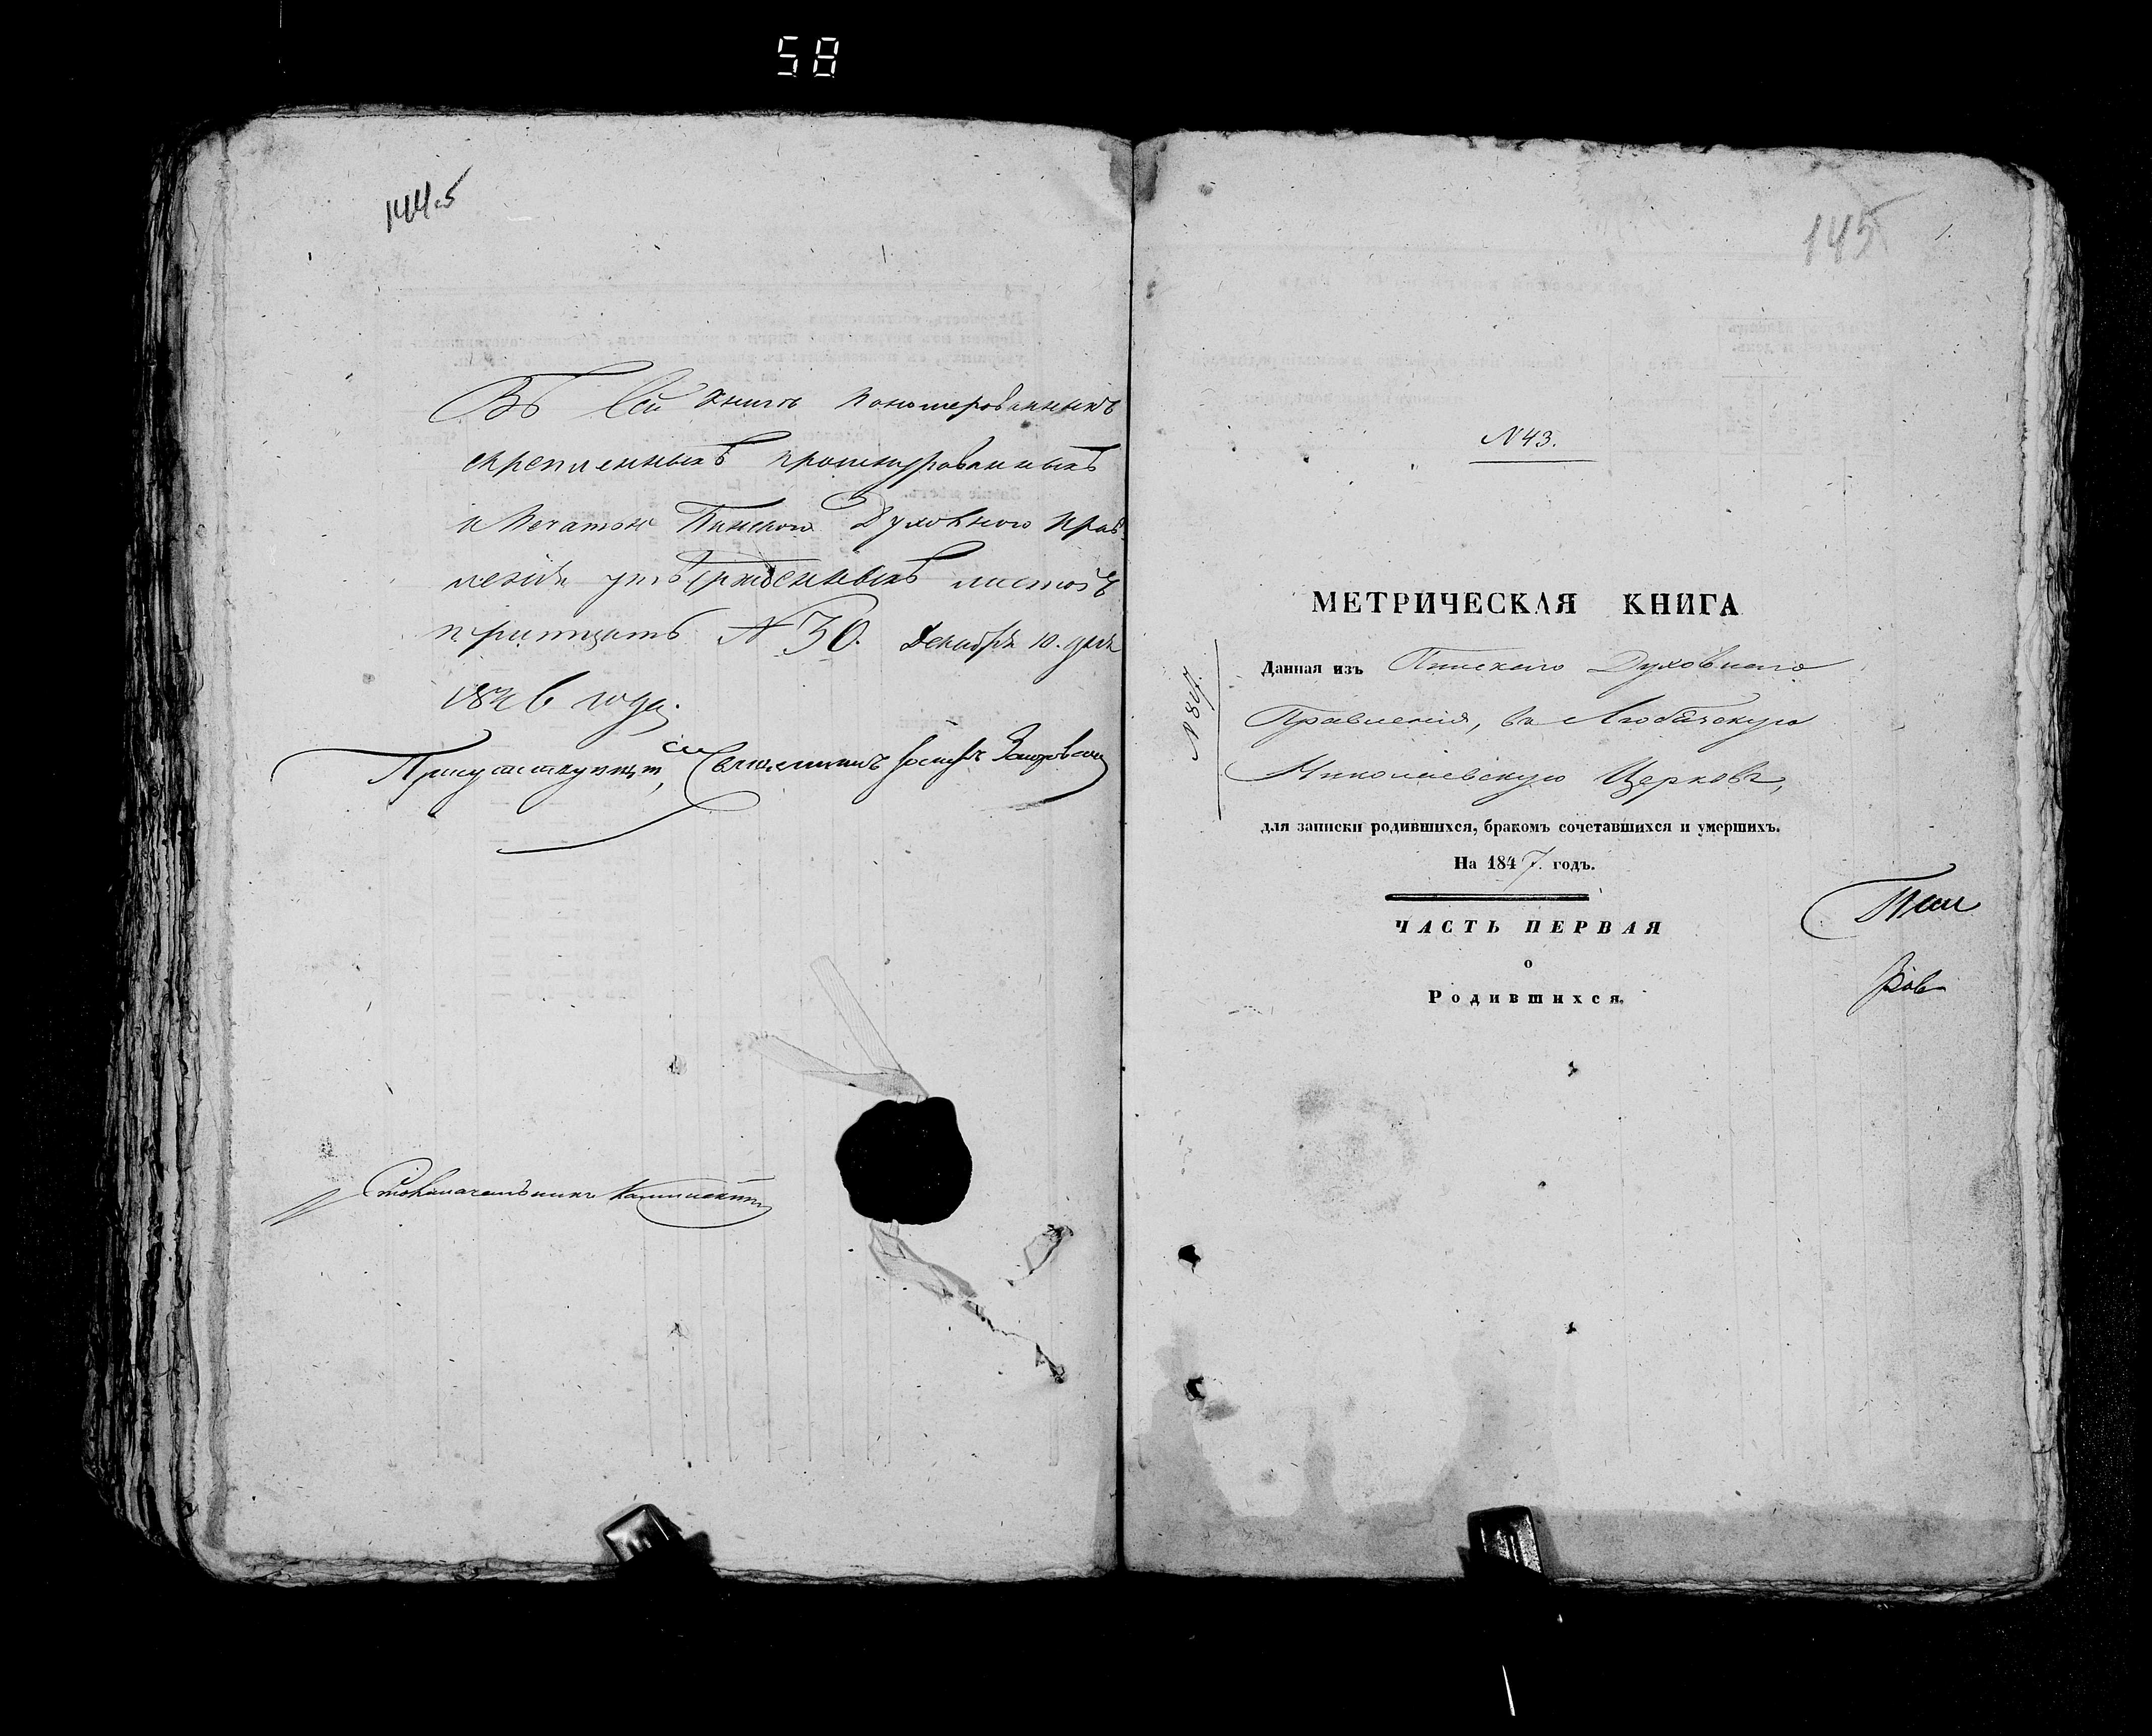 58
144.5
Въ сей книгѣ пономерованныхъ
скрепленныхъ прошнурованныхъ
и Печатью Пинского Духовного Прав
ленія утвержденныхъ листовъ
тритцать N 30. Декабря 10. дня
1846 года.
Присутствующій, Священникъ Іосифъ
Столоначальникъ
145
1.
N 43.
МЕТРИЧЕСКАЯ КНИГА
N 847.
Данная изъ Пинскаго Духовнаго
Правленія, въ Любачскую
Николаевскую Церковь,
для записки родившихся, бракомъ сочетавшихся и умершихъ.
На 1847. годъ.
ЧАСТЬ ПЕРВАЯ
о
Родившихся.